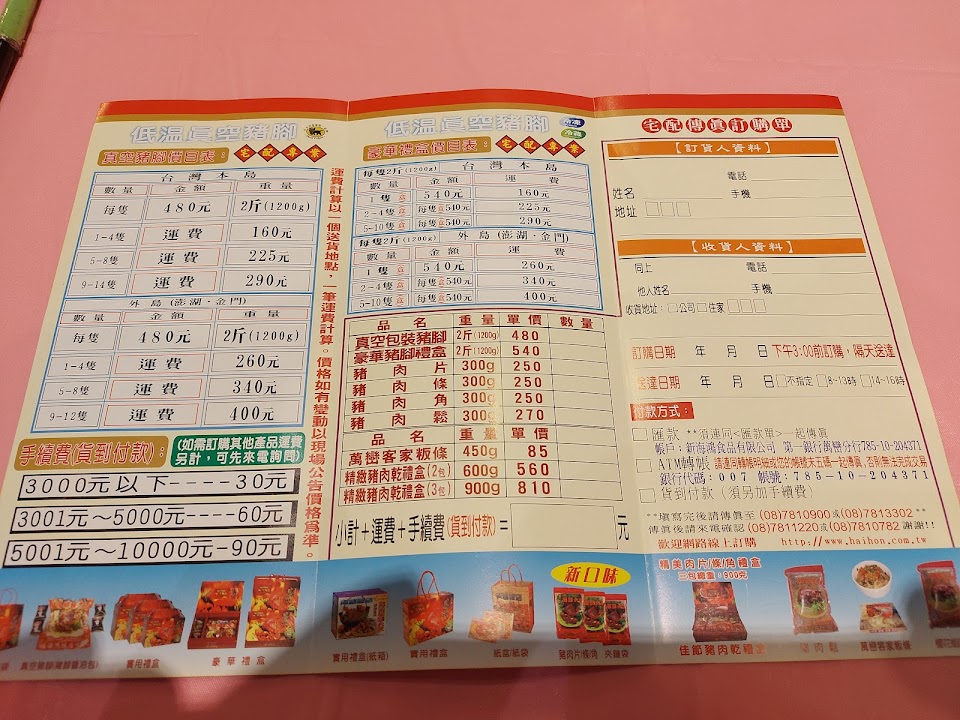 低溫真空豬腳
真空豬腳價目表：宅配專業
台灣本島
數量 金額 重量
每隻 480元 2斤(1200g)
1-4隻 運費 160元
5-8隻 運費 225元
9-14隻 運費 290元
外島(澎湖、金門)
數量 金額 重量
每隻 480元 2斤(1200g)
1-4隻 運費 260元
5-8隻 運費 340元
9-12隻 運費 400元
手續費(貨到付款)：
(如需訂購其他產品運費
另計，可先來電詢問)
3000元以下----30元
3001元～5000元----60元
5001元～10000元-90元
運費計算以一個送貨地點，一筆運費計算。價格如有變動以現場公告價格為準。
低溫真空豬腳
冷凍
冷藏
豪華禮盒價目表：宅配專業
每隻2斤(1200g) 台灣本島
數量 金額 運費
1隻盒 540元 160元
2-4隻盒 每隻盒540元 225元
5-10隻盒 每隻盒540元 290元
每隻2斤(1200g) 外島(澎湖、金門)
數量 金額 運費
1隻盒 540元 260元
2-4隻盒 每隻盒540元 340元
5-10隻盒 每隻盒540元 400元
品名 重量 單價 數量
真空包裝豬腳 2斤(1200g) 480
豪華豬腳禮盒 2斤(1200g) 540
豬肉片 300g 250
豬肉條 300g 250
豬肉角 300g 250
豬肉鬆 300g 270
品名 重量 單價 數量
萬巒客家粄條 450g 85
精緻豬肉乾禮盒(2包) 600g 560
精緻豬肉乾禮盒(3包) 900g 810
小計＋運費＋手續費(貨到付款)＝ 元
宅配傳真訂購單
【訂貨人資料】
電話
姓名 手機
地址
【收貨人資料】
同上 電話
他人姓名 手機
收貨地址：□公司□住家
訂購日期 年 月 日 下午3:00前訂購，隔天送達
送達日期 年 月 日 □不指定 □8-13時 □14-16時
付款方式：
□匯款 **須連同<匯款單>一起傳真
帳戶：新海鴻食品有限公司 第一銀行萬巒分行785-10-204371
□ATM轉帳 請連同轉帳明細或您的帳號末五碼一起傳真，否則無法完成交易
銀行代碼：007 帳號：785-10-204371
□貨到付款(須另加手續費)
**填寫完後請傳真至(08)7810900或(08)7813302**
傳真後請來電確認(08)7811220或(08)7810782謝謝!!
歡迎網路線上訂購 http://www.haihon.com.tw
真空豬腳(豬腳醬油包)
實用禮盒
豪華禮盒
實用禮盒(紙箱)
實用禮盒
紙盒/紙袋
新口味
豬肉片/條/角 夾鏈袋
精美肉片/條/角禮盒
三包總重：900克
佳節豬肉乾禮盒
豬肉鬆
萬巒客家粄條